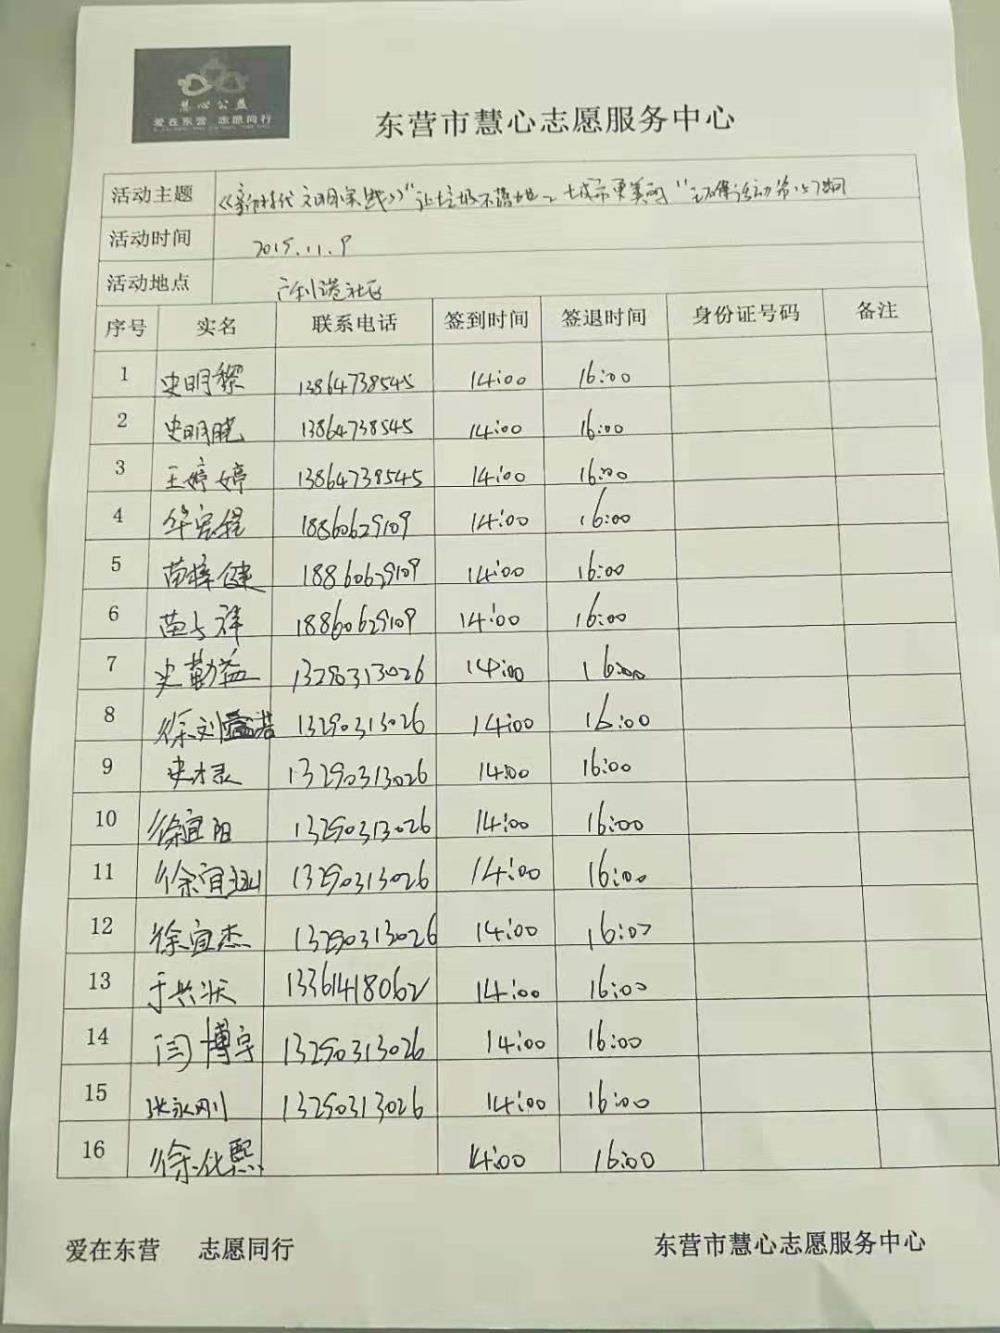 慧心公益
爱在东营 志愿同行
东营市慧心志愿服务中心
活动主题 《新时代文明实践》"让垃圾不落地、城市更美丽"环保活动第157期
活动时间 2019.11.9
活动地点 广利港社区
序号 实名 联系电话 签到时间 签退时间 身份证号码 备注
1 史明黎 13864738545 14:00 16:00
2 史明晓 13864738545 14:00 16:00
3 王婷婷 13864738545 14:00 16:00
4 18860629109 14:00 16:00
5 苗梓健 18860629109 14:00 16:00
6 苗 祥 18860629109 14:00 16:00
7 史勤益 13290313026 14:00 16:00
8 徐刘 诺 13290313026 14:00 16:00
9 史才录 13290313026 14:00 16:00
10 徐宜阳 13290313026 14:00 16:00
11 徐宜 13290313026 14:00 16:00
12 徐宜杰 13290313026 14:00 16:00
13 于兴 13361418062 14:00 16:00
14 闫博宇 13290313026 14:00 16:00
15 张永刚 13290313026 14:00 16:00
16 徐化熙 14:00 16:00
爱在东营 志愿同行 东营市慧心志愿服务中心